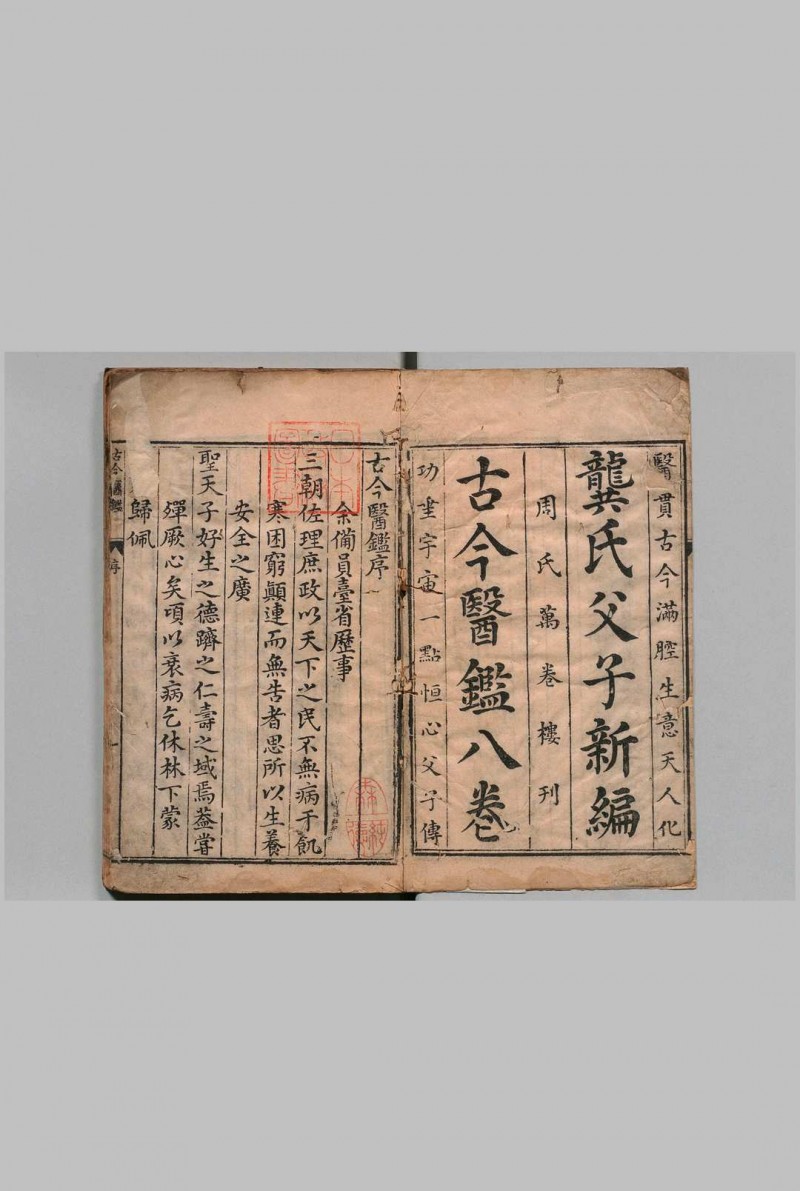 醫貫古今滿腔生意天人化
龔氏父子新編
周氏萬卷樓刊
古今醫鑑八卷
功垂宇宙一點恒心父子傳
古今醫鑑序
余備員臺省歷事
三朝佐理庶政以天下之民不無病于飢
寒困窮顛連而無告者思所以生養
安全之廣
聖天子好生之德躋之仁壽之域焉葢甞
殫厥心矣頃以衰病乞休林下蒙
歸佩
古今醫鑑
序
一